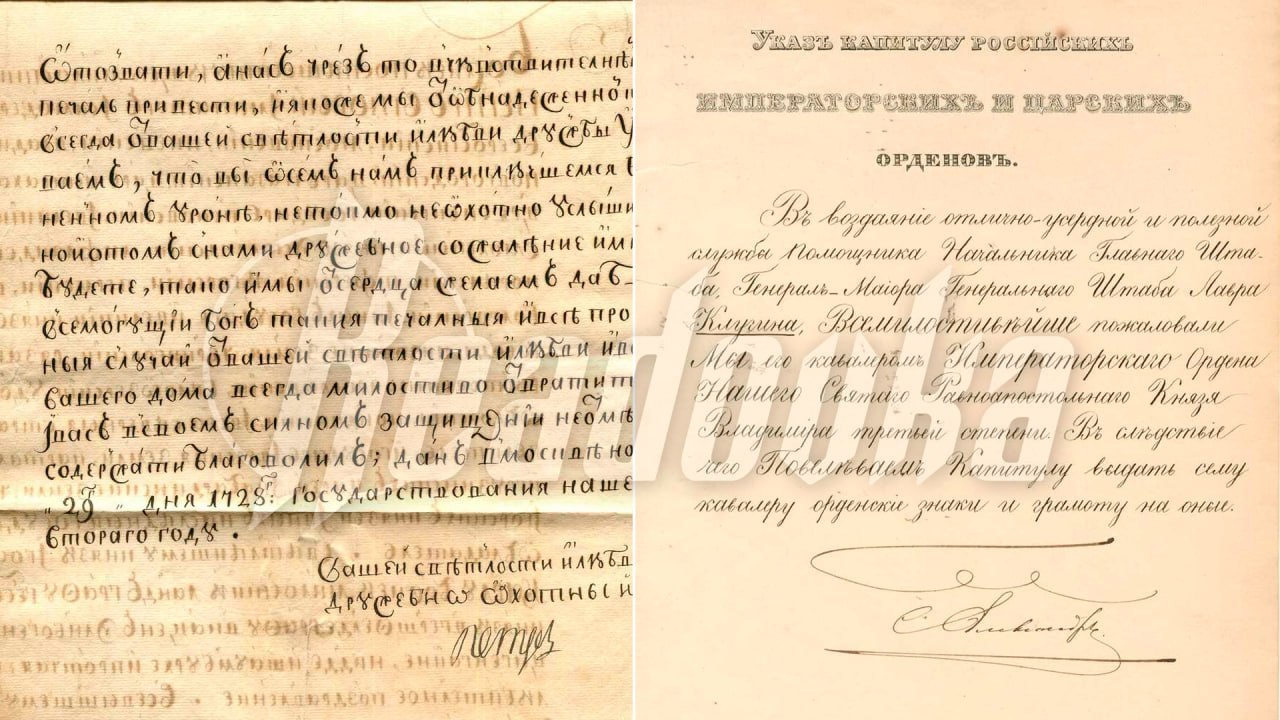 печаль привести, иякоже мы
всегда ѿвашей свѣтлости илюбви дружбы у
ваемъ, что вы ѡсемъ намъ приключшемся в
ненномъ уронѣ, нетокмо неѡхотно услыши
нойотомъ снами дружебное сожаление им
будете, тако имы ѿсердца желаемъ даб
всемогущій Богъ такия печалныя ивсѣ про
ныя случаи ѿвашей свѣтлости илюбви
вашего дома всегда милостиво ѿвратит
івасъ всвоемъ силномъ защищении неотмѣ
содержати благоволилъ; данъ вмосквѣ но
„ 29 „ дня 1728г: государствования наше
втораго году.
Вашей свѣтлости илюбв
дружебнѡ ѡхотный и
Петръ
Указъ капитулу россійскихъ
императорскихъ и царскихъ
орденовъ.
Въ воздаяніе отлично-усердной и полезной
службы Помощника Начальника Главнаго Шта-
ба, Генералъ-Маіора Генеральнаго Штаба Лавра
Клугина, Всемилостивѣйше пожаловали
Мы его кавалеромъ Императорскаго Ордена
Нашего Святаго Равноапостольнаго Князя
Владиміра третьей степени. Въ слѣдствіе
чего Повелѣваемъ Капитулу выдать сему
кавалеру орденскіе знаки и грамоту на оные.
Александръ